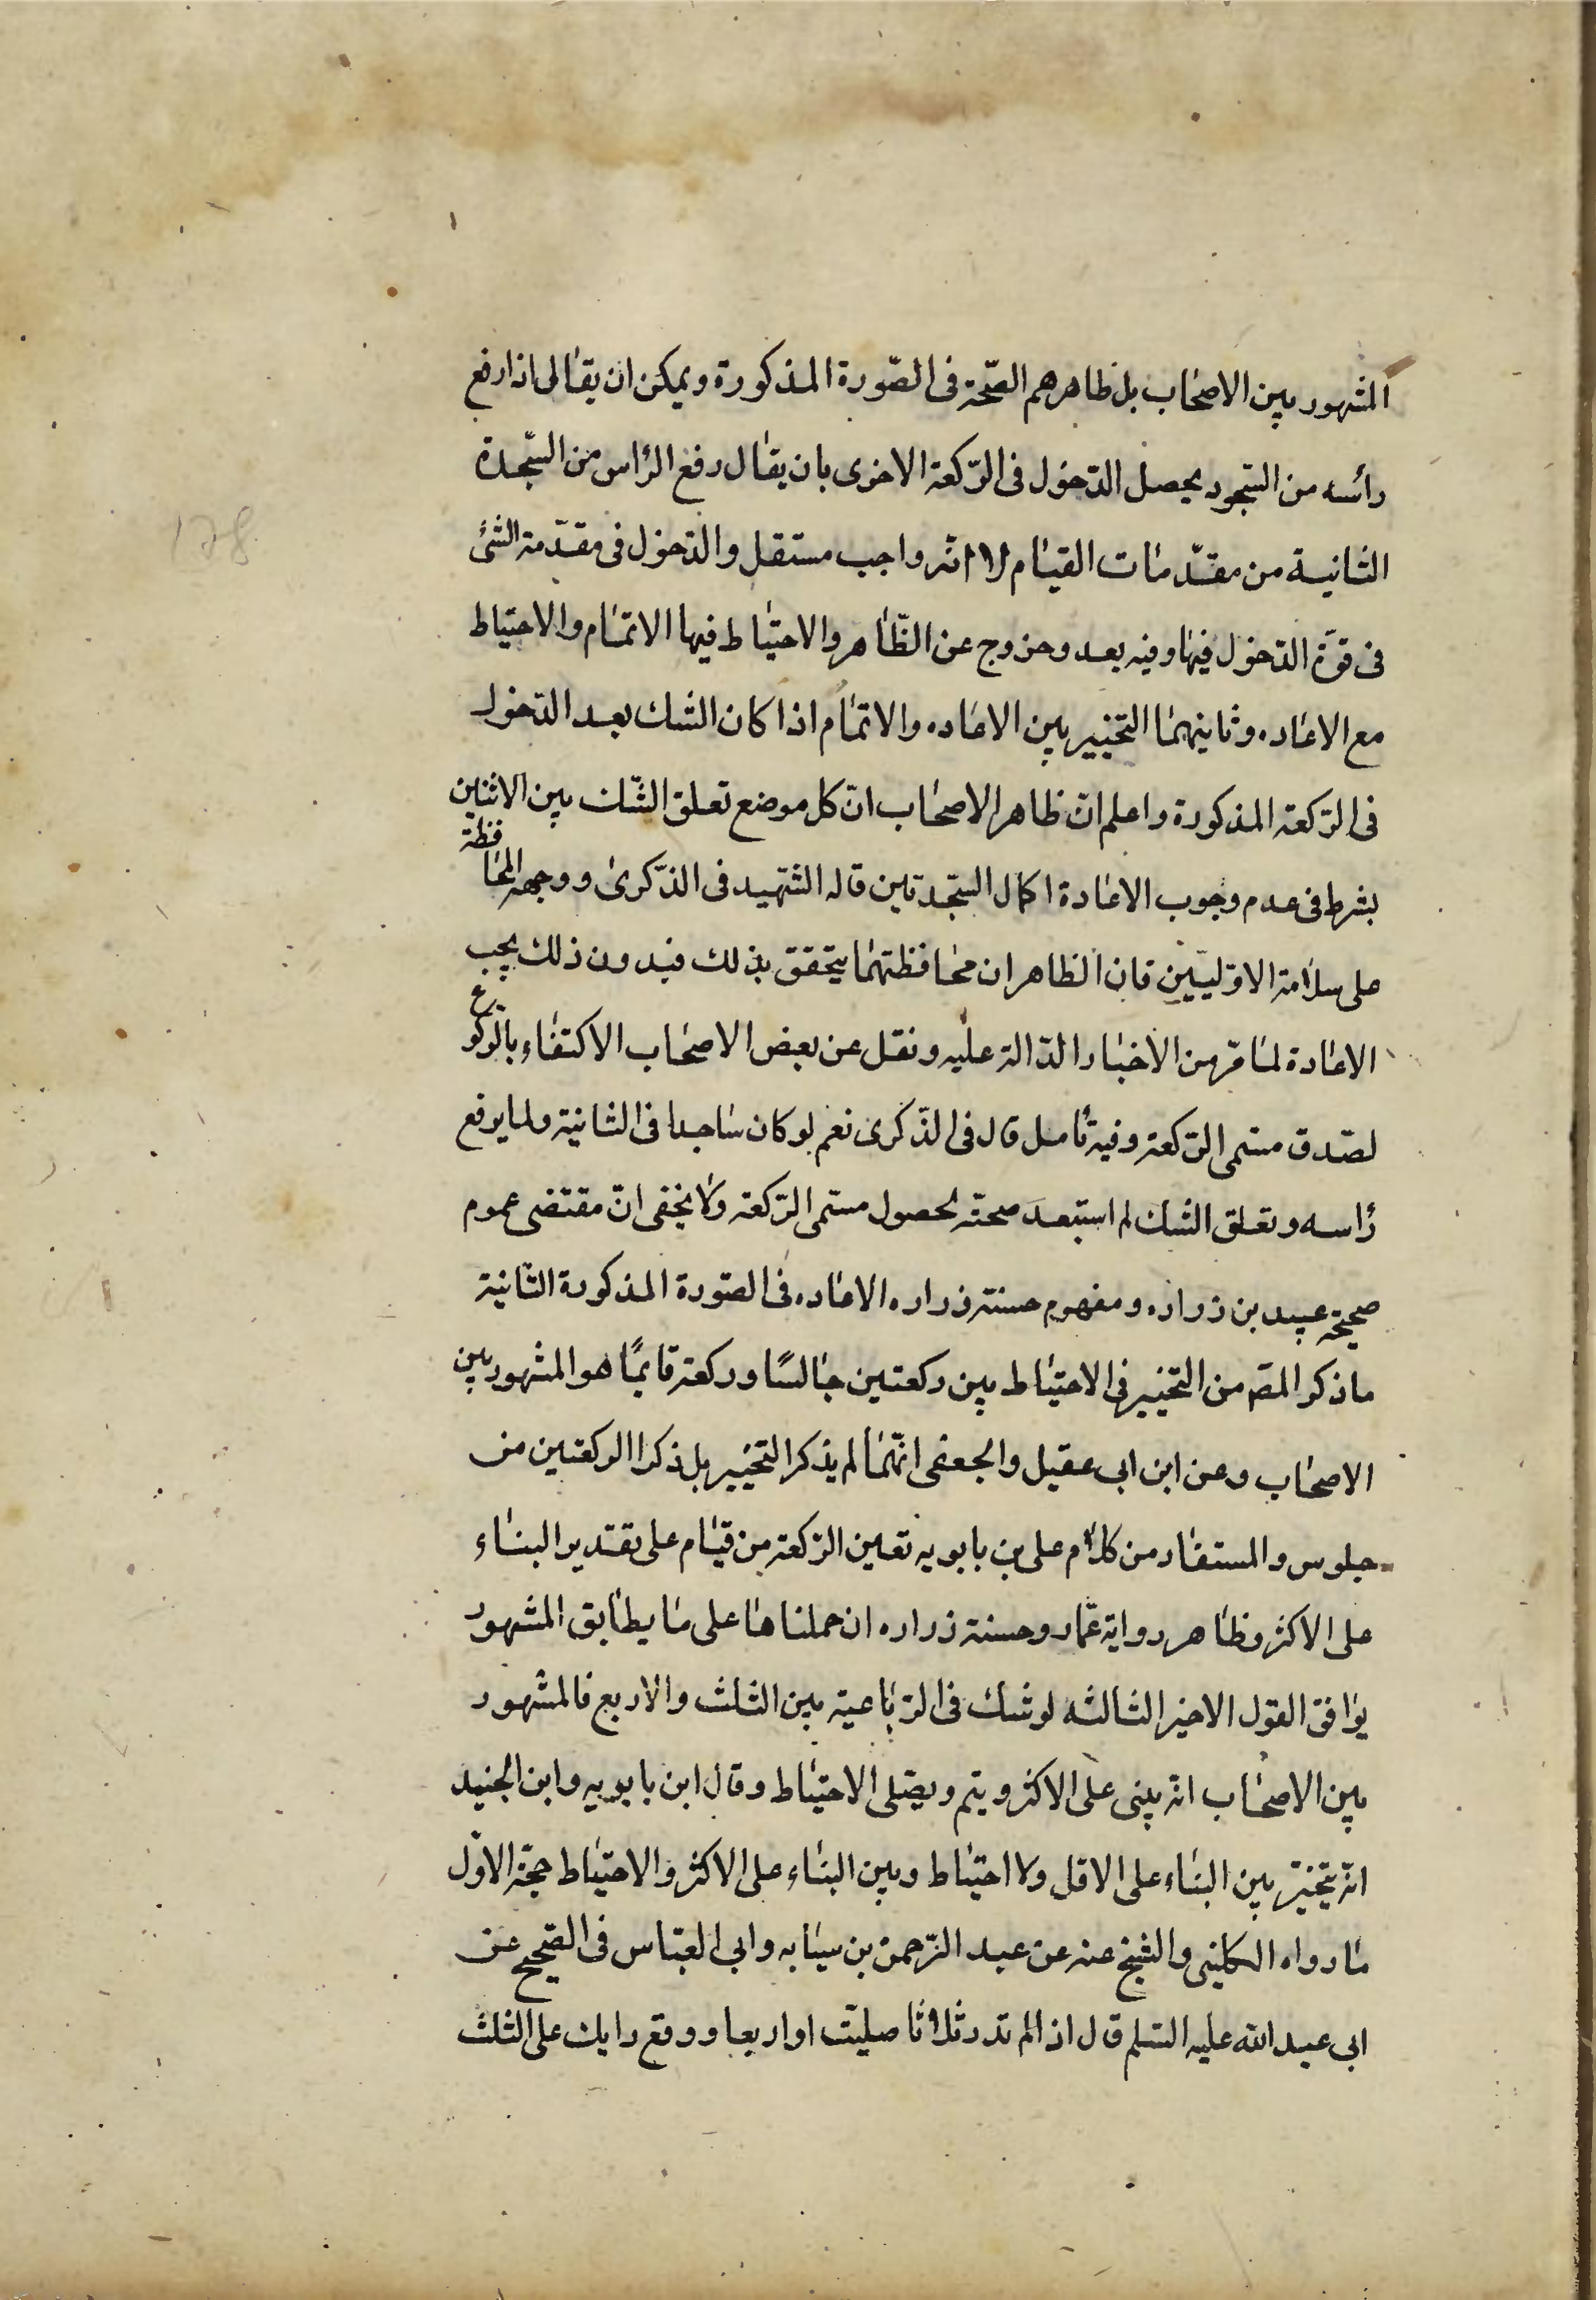 المشهور بين الاصحاب بل ظاهرهم الصّحة فى الصّورة المذكورة ويمكن ان يقال اذا رفع
رأسه من السّجود يحصل الدّخول فى الرّكعة الاخرى بان يقال رفع الرّاس من السّجدة
الثانية من مقدّمات القيام لا انّه واجب مستقل والدّخول فى مقدّمة الشئ
فى قوّة الدّخول فيها وفيه بعد وخروج عن الظّاهر والاحتياط فيها الاتمام والاحتياط
مع الاعاده وثانيهما التخيير بين الاعاده والاتمام اذا كان الشك بعد الدّخول
فى الرّكعة المذكورة واعلم انّ ظاهر الاصحاب انّ كل موضع تعلق الشّك بين الاثنين
بشرط فى عدم وجوب الاعادة اكمال السّجدتين قاله الشّهيد فى الذّكرىٰ ووجهه المحافظة
على سلامة الاوّليين فان الظاهر ان محافظتهما يتحقق بذلك فبدون ذلك يجب
الاعادة لما مرّ من الأخبار الدّالة عليه ونقل عن بعض الاصحاب الاكتفاء بالركوع
لصدق مسمى الرّكعة وفيه تأمل قال فى الذّكرى نعم لو كان ساجدا فى الثانية ولما يرفع
رأسه وتعلق الشك لم استبعد صحته لحصول مسمى الرّكعة ولا يخفى انّ مقتضى عموم
صحيحة عبيد بن زراره ومفهوم حسنة زراره الاعاده فى الصّورة المذكورة الثّانية
ما ذكر المصّ من التخيير فى الاحتياط بين ركعتين جالسًا وركعة قايمًا هو المشهور بين
الاصحاب وعن ابن ابى عقيل والجعفى انّهما لم يذكرا التخيير بل ذكرا الركعتين من
جلوس والمستفاد من كلام على بن بابويه تعين الرّكعة من قيام على تقدير البناء
على الاكثر وظاهر رواية عمّار وحسنة زراره ان حملناها على ما يطابق المشهور
يوافق القول الاخير الثالثه لو شك فى الرّباعية بين الثلث والاربع فالمشهور
بين الاصحاب انه يبنى على الاكثر ويتم ويصّلى الاحتياط وقال ابن بابويه وابن الجنيد
انه يتخيّر بين البناء على الاقل ولا احتياط وبين البناء على الاكثر والاحتياط حجّة الاوّل
ما رواه الكلينى والشيخ عنه عن عبد الرّحمن بن سيابه وابى العباس فى الصّحيح عن
ابى عبد الله عليه السّلم قال اذا لم تدر ثلاثا صليت او اربعا ووقع رايك على الثلث